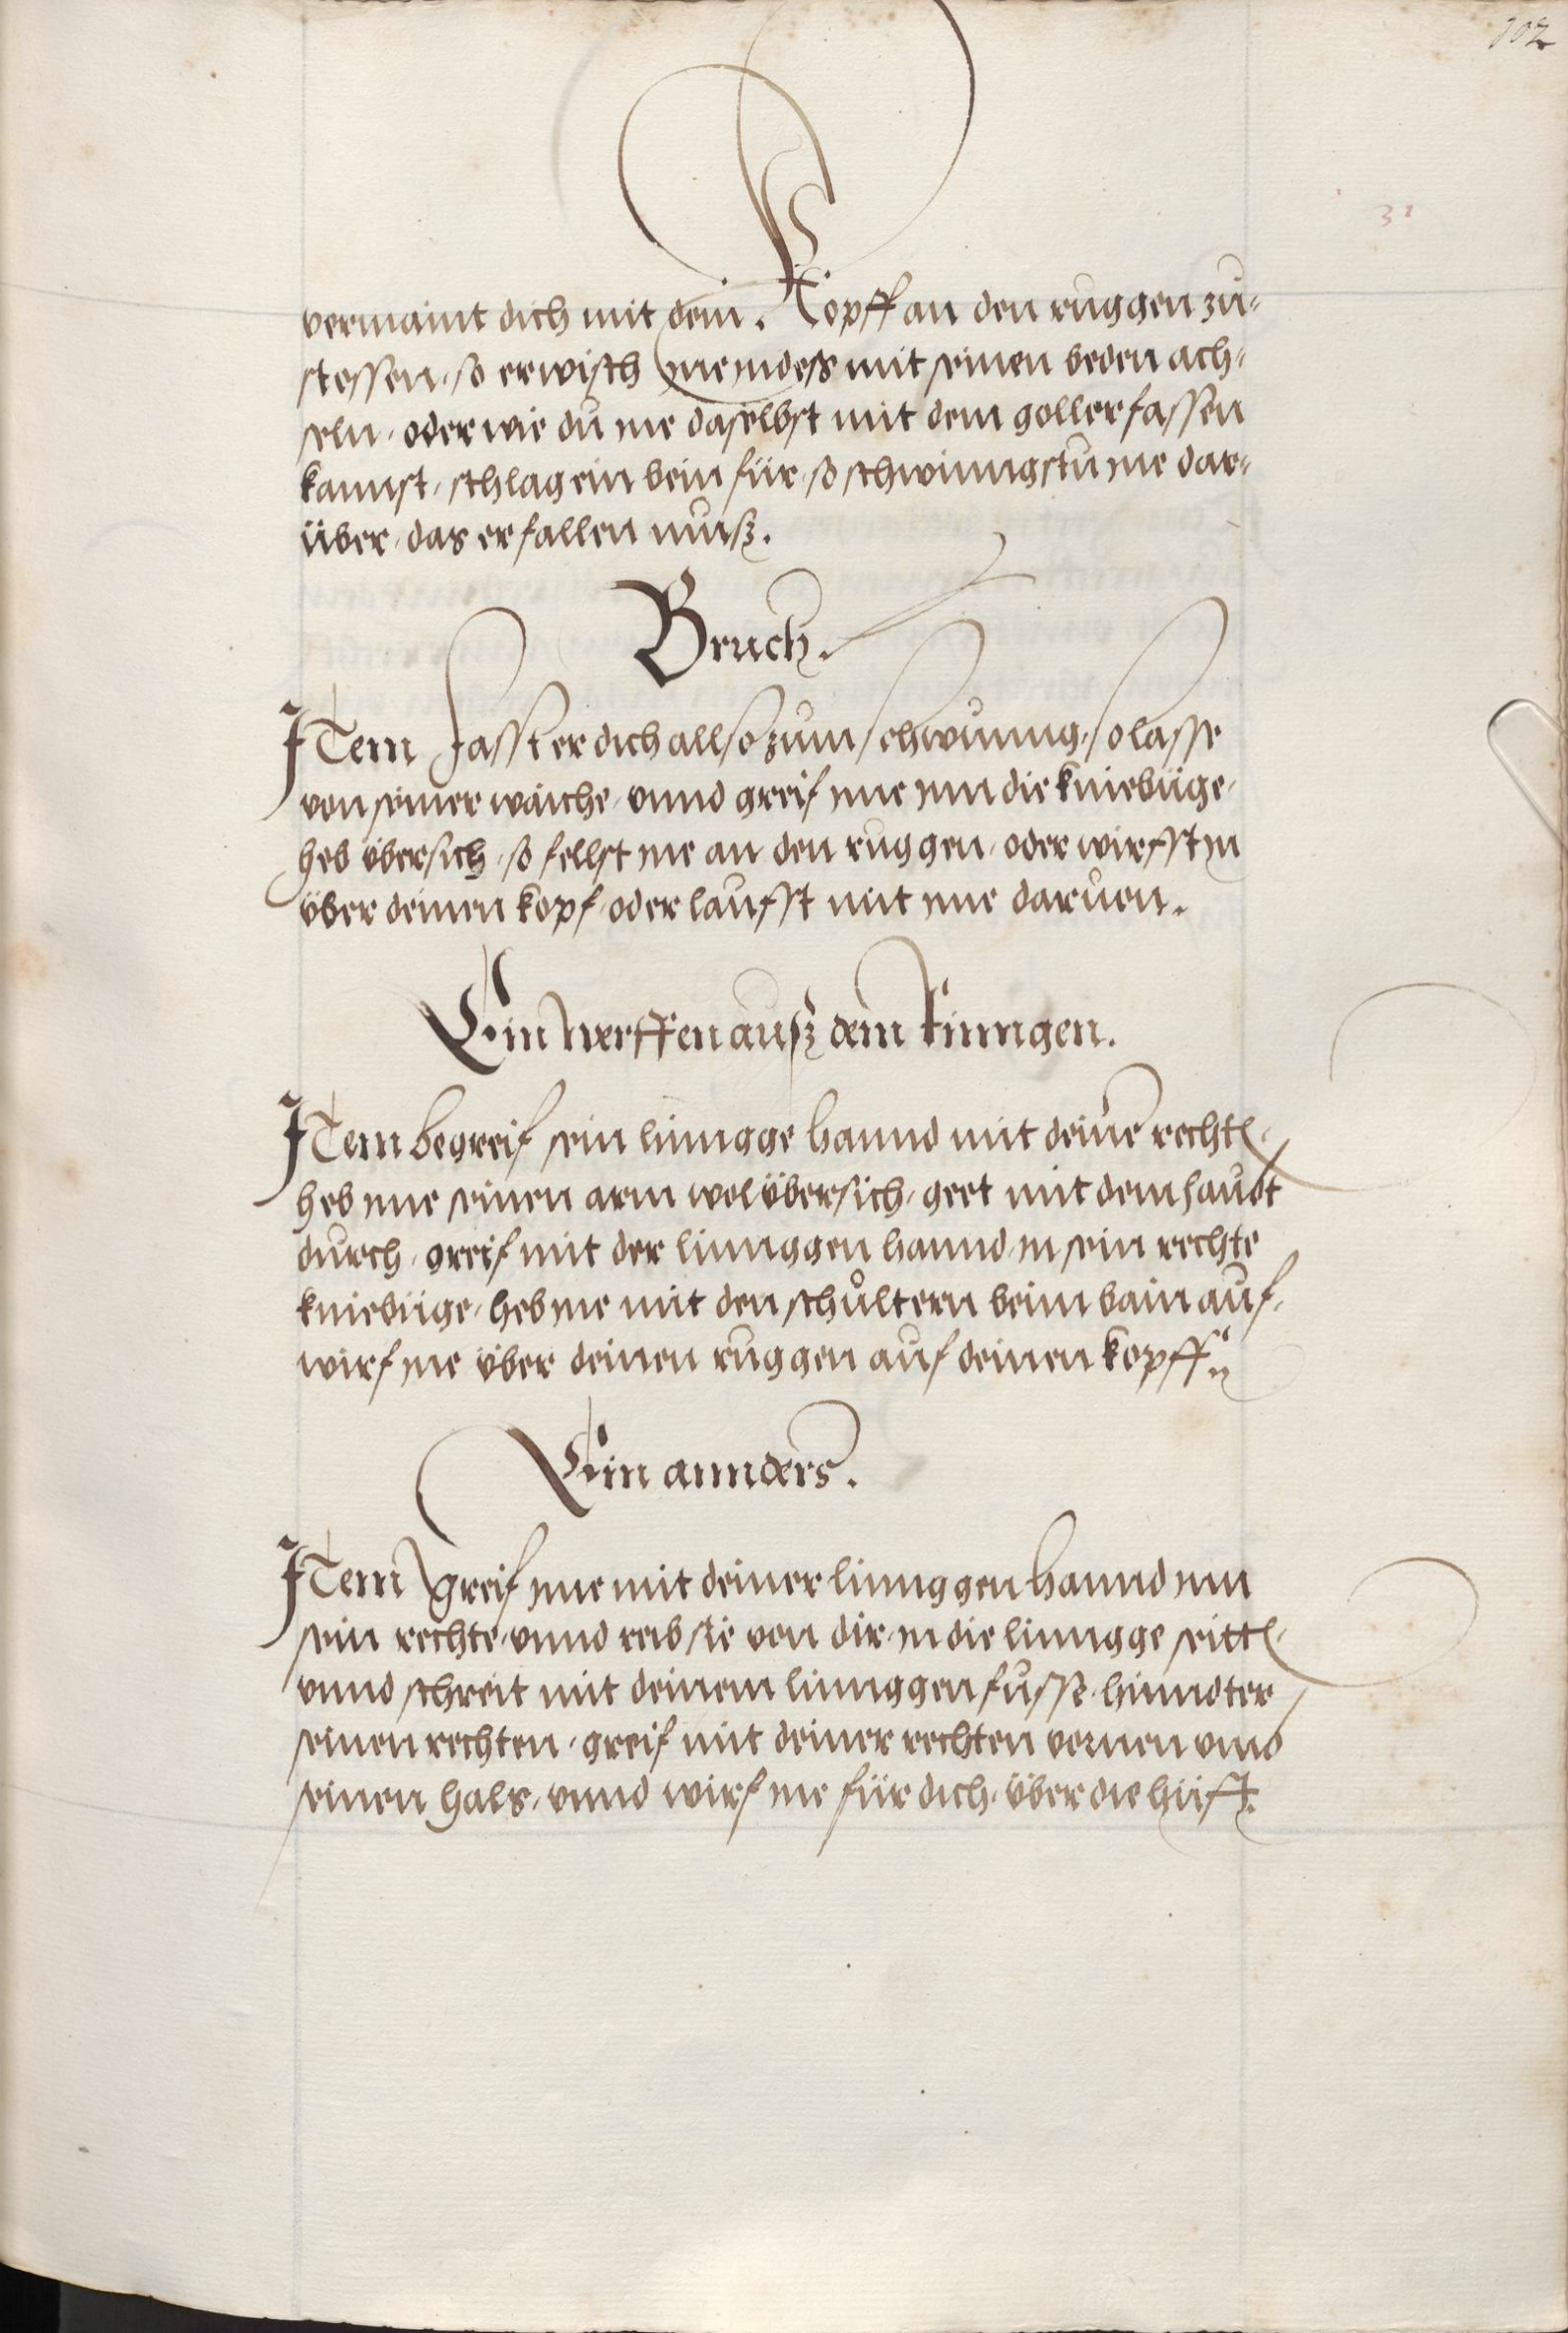 102
31
vermaint dich mit dem Kopff an den ruggen zu-
stossen, so erwisch ine indess mit seinen beden ach-
seln, oder wie du ine daselbst mit dem goller fassen
kannst, schlag ein bein für, so schwinngstu ine dar-
über, das er fallen muß.
Bruch.
Item fasst er dich allso zum schwunng, so lasse
von seiner waiche, vnnd greif ime inn die kniebüge,
heb übersich, so fellst ine an den ruggen, oder wirfst in
über deinen kopf, oder laufst mit ime daruon.
Ein werffen auß dem Rinngen.
Item begreif sein linngge hannd mit deine rechtn,
heb ime seinen arm wol übersich, geet mit dem haubt
durch, greif mit der linnggen hannd in sein rechte
kniebüge, heb ine mit den schůltern beim bain auf,
wirf ine über deinen ruggen auf deinen kopff
Ein annders.
Item greif ime mit deiner linnggen hannd inn
sein rechte, vnnd reib sie von dir, in die linngge seittn,
vnnd schreit mit deinem linnggen fusse, hinndter
seinen rechten, greif mit deiner rechten vornen vmb
seinen hals, vnnd wirf ine für dich, über die hüft.